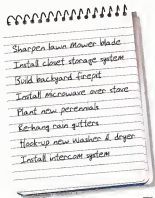 Sharpen lawn mower blade
Install closet storage system
Build backyard firepit
Install microwave over stove
Plant new perennials
Re-hang rain gutters
Hook-up new washer & dryer
Install intercom system